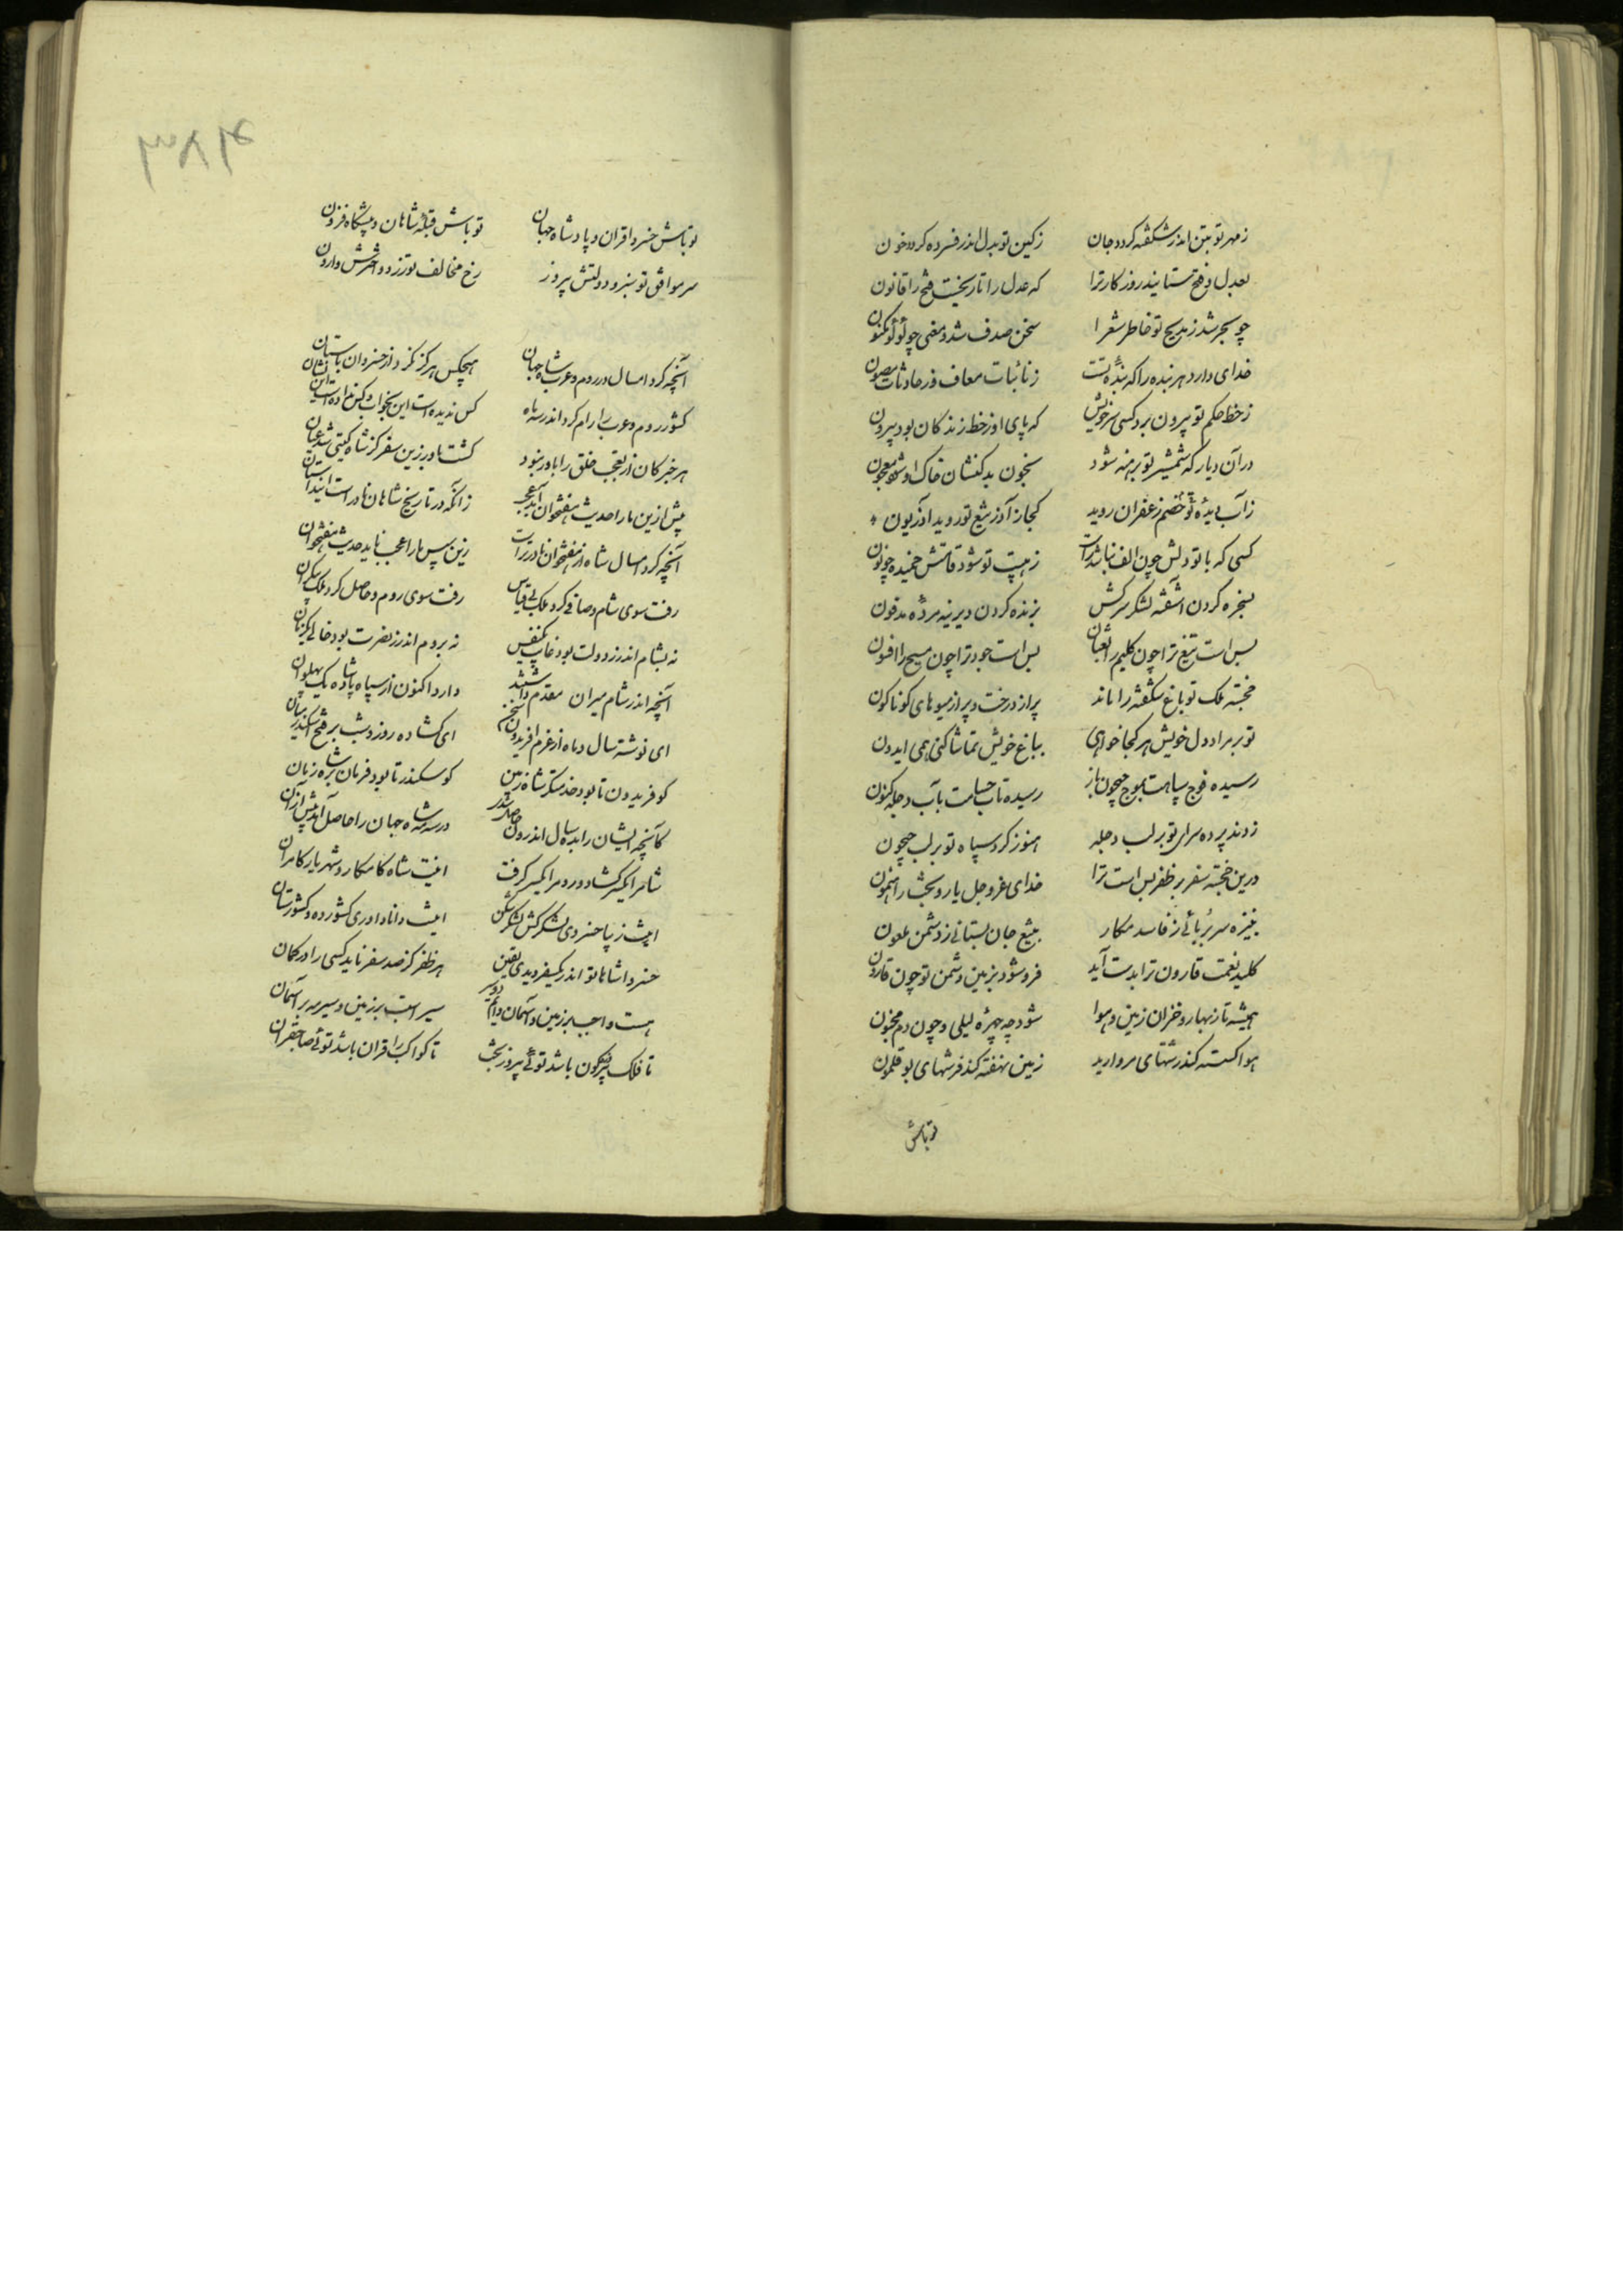 زمهر تو بتن اندر شکفته گردد جان زکین تو بدل اندر فسرده گردد خون
بعدل و فتح ستایند روزگار ترا که عدل را تاریخست فتح را قانون
چو بحر شد ز مدیح تو خاطر شعرا سخن صدف شد و معنی چو لؤلؤ مکنون
خدای دارد هر بنده را که بندهٔ تست ز نائبات معاف و ز حادثات مصون
ز خط حکم تو بیرون برد کسی سر خویش که پای او ز خط زندگان بود بیرون
در آن دیار که شمشیر تو برهنه شود بخون بدکنشان خاک او شود معجون
ز آب دیدهٔ تو خصم زعفران روید کجا ز آذر تیغ تو روید آذریون
کسی که با تو دلش چون الف نباشد راست ز هیبت تو شود قامتش خمیده چو نون
بسخره کردن آشفته لشکر سرکش بزنده کردن دیرینه مردهٔ مدفون
بس است تیغ ترا چون کلیم را ثعبان بس است جود ترا چون مسیح را افسون
خجسته ملک تو باغ شگفته را ماند پر از درخت و پر از میوهای گوناگون
تو بر مراد دل خویش هر کجا خواهی بباغ خویش تماشا کنی همی ایدون
رسیده فوج سپاهت بموج جیحون باز رسیده تاب حسامت بآب دجله کنون
زدند پرده سرای تو بر لب دجله هنوز گرد سپاه تو بر لب جیحون
درین خجسته سفر بر ظفر بس است ترا خدای عزوجل یار و بخت راهنمون
بنیزه سر بربائی ز فاسد مکار بتیغ جان بستانی ز دشمن ملعون
کلید نعمت قارون ترا بدست آید فرو شود بزمین دشمن تو چون قارون
همیشه تا ز بهار و خزان زمین و هوا شود چه چهرهٔ لیلی و چون دم مجنون
هوا گسسته کند رشتهای مروارید زمین نهفته کند فرشهای بوقلمون
تو باش
۴۸۳
تو باش خسرو اقران و پادشاه جهان تو باش قبلهٔ شاهان و پیشگاه قرون
سر موافق تو سبز و دولتش پیروز رخ مخالف تو زرد و اخترش وارون
آنچه کرد امسال در روم و عرب شاه جهان هیچکس هرگز نکرد از خسروان باستان
کشور روم و عرب را رام کرد اندر سه ماه کس ندیده است این بخواب و کس نداده است این نشان
هر خبر کان از تعجب خلق را باور نبود گشت باور زین سفر کز شاه گیتی شد عیان
پیش ازین ما را حدیث هفتخوان آمد عجب زانکه در تاریخ شاهان نادر است این داستان
آنچه کرد امسال شاه از هفتخوان نادرتر است زین سپس ما را عجب ناید حدیث هفتخوان
رفت سوی شام و صافی کرد ملک بی قیاس رفت سوی روم و حاصل کرد ملک بیکران
نه بشام اندر ز دولت بود غایب یکنفس نه بروم اندر ز نصرت بود خالی یکزمان
آنچه اندر شام میران مقدم داشتند دارد اکنون از سپاه پادشاه یک پهلوان
ای نوشته سال و ماه از عزم افریدون سخن ای گشاده روز و شب بر فتح اسکندر بیان
کو فریدون تا بود خدمتگر شاه زمین کو سکندر تا بود فرمانبر شاه زمان
کانچه ایشان را بده سال اندرون حاصل شدی در سه مه شاه جهان را حاصل آمد بیش از آن
شام را یکسر گشاد و روم را یکسر گرفت اینت شاه کامکار و شهریار کامران
اینت زیبا خسروی لشکرکش لشکرشکن اینت دانا داوری کشور ده و کشورستان
خسروا شاها تو اندر یک سفر دیدی یقین هر ظفر کز صد سفر ناید کسی را در گمان
هست واجب بر زمین و آسمان دایم دو سیر سیر اسبت بر زمین و سیر مه بر آسمان
تا فلک پیروزه‌گون باشد توئی پیروز بخت تا کواکب را قران باشد توئی صاحبقران